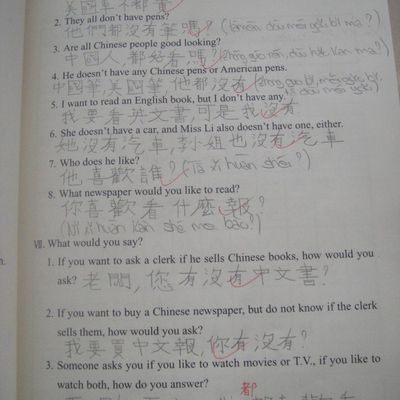 美國車不都貴
2. They all don't have pens?
他們都沒有筆嗎？(tāmén dōu méi yǒu bǐ ma?)
3. Are all Chinese people good looking?
中國人，都好看嗎？(Zhōng guó rén, dōu hǎo kàn ma?)
4. He doesn't have any Chinese pens or American pens.
中國筆，美國筆，他都沒有 (Zhōng guó bǐ, měi guó bǐ,
tā dōu méi yǒu.)
5. I want to read an English book, but I don't have any.
我要看英文書，可是我沒有
6. She doesn't have a car, and Miss Li also doesn't have one, either.
她沒有汽車，李小姐也沒有汽車
7. Who does he like?
他喜歡誰？(Tā xǐ huān shéi?)
8. What newspaper would you like to read?
你喜歡看什麼報？
(Nǐ xǐ huān kàn shé me bào?)
VII. What would you say?
1. If you want to ask a clerk if he sells Chinese books, how would you
ask? 老闆，您有沒有中文書？
2. If you want to buy a Chinese newspaper, but do not know if the clerk
sells them, how would you ask?
我要買中文報，你有沒有？
3. Someone asks you if you like to watch movies or T.V., if you like to
watch both, how do you answer?
都